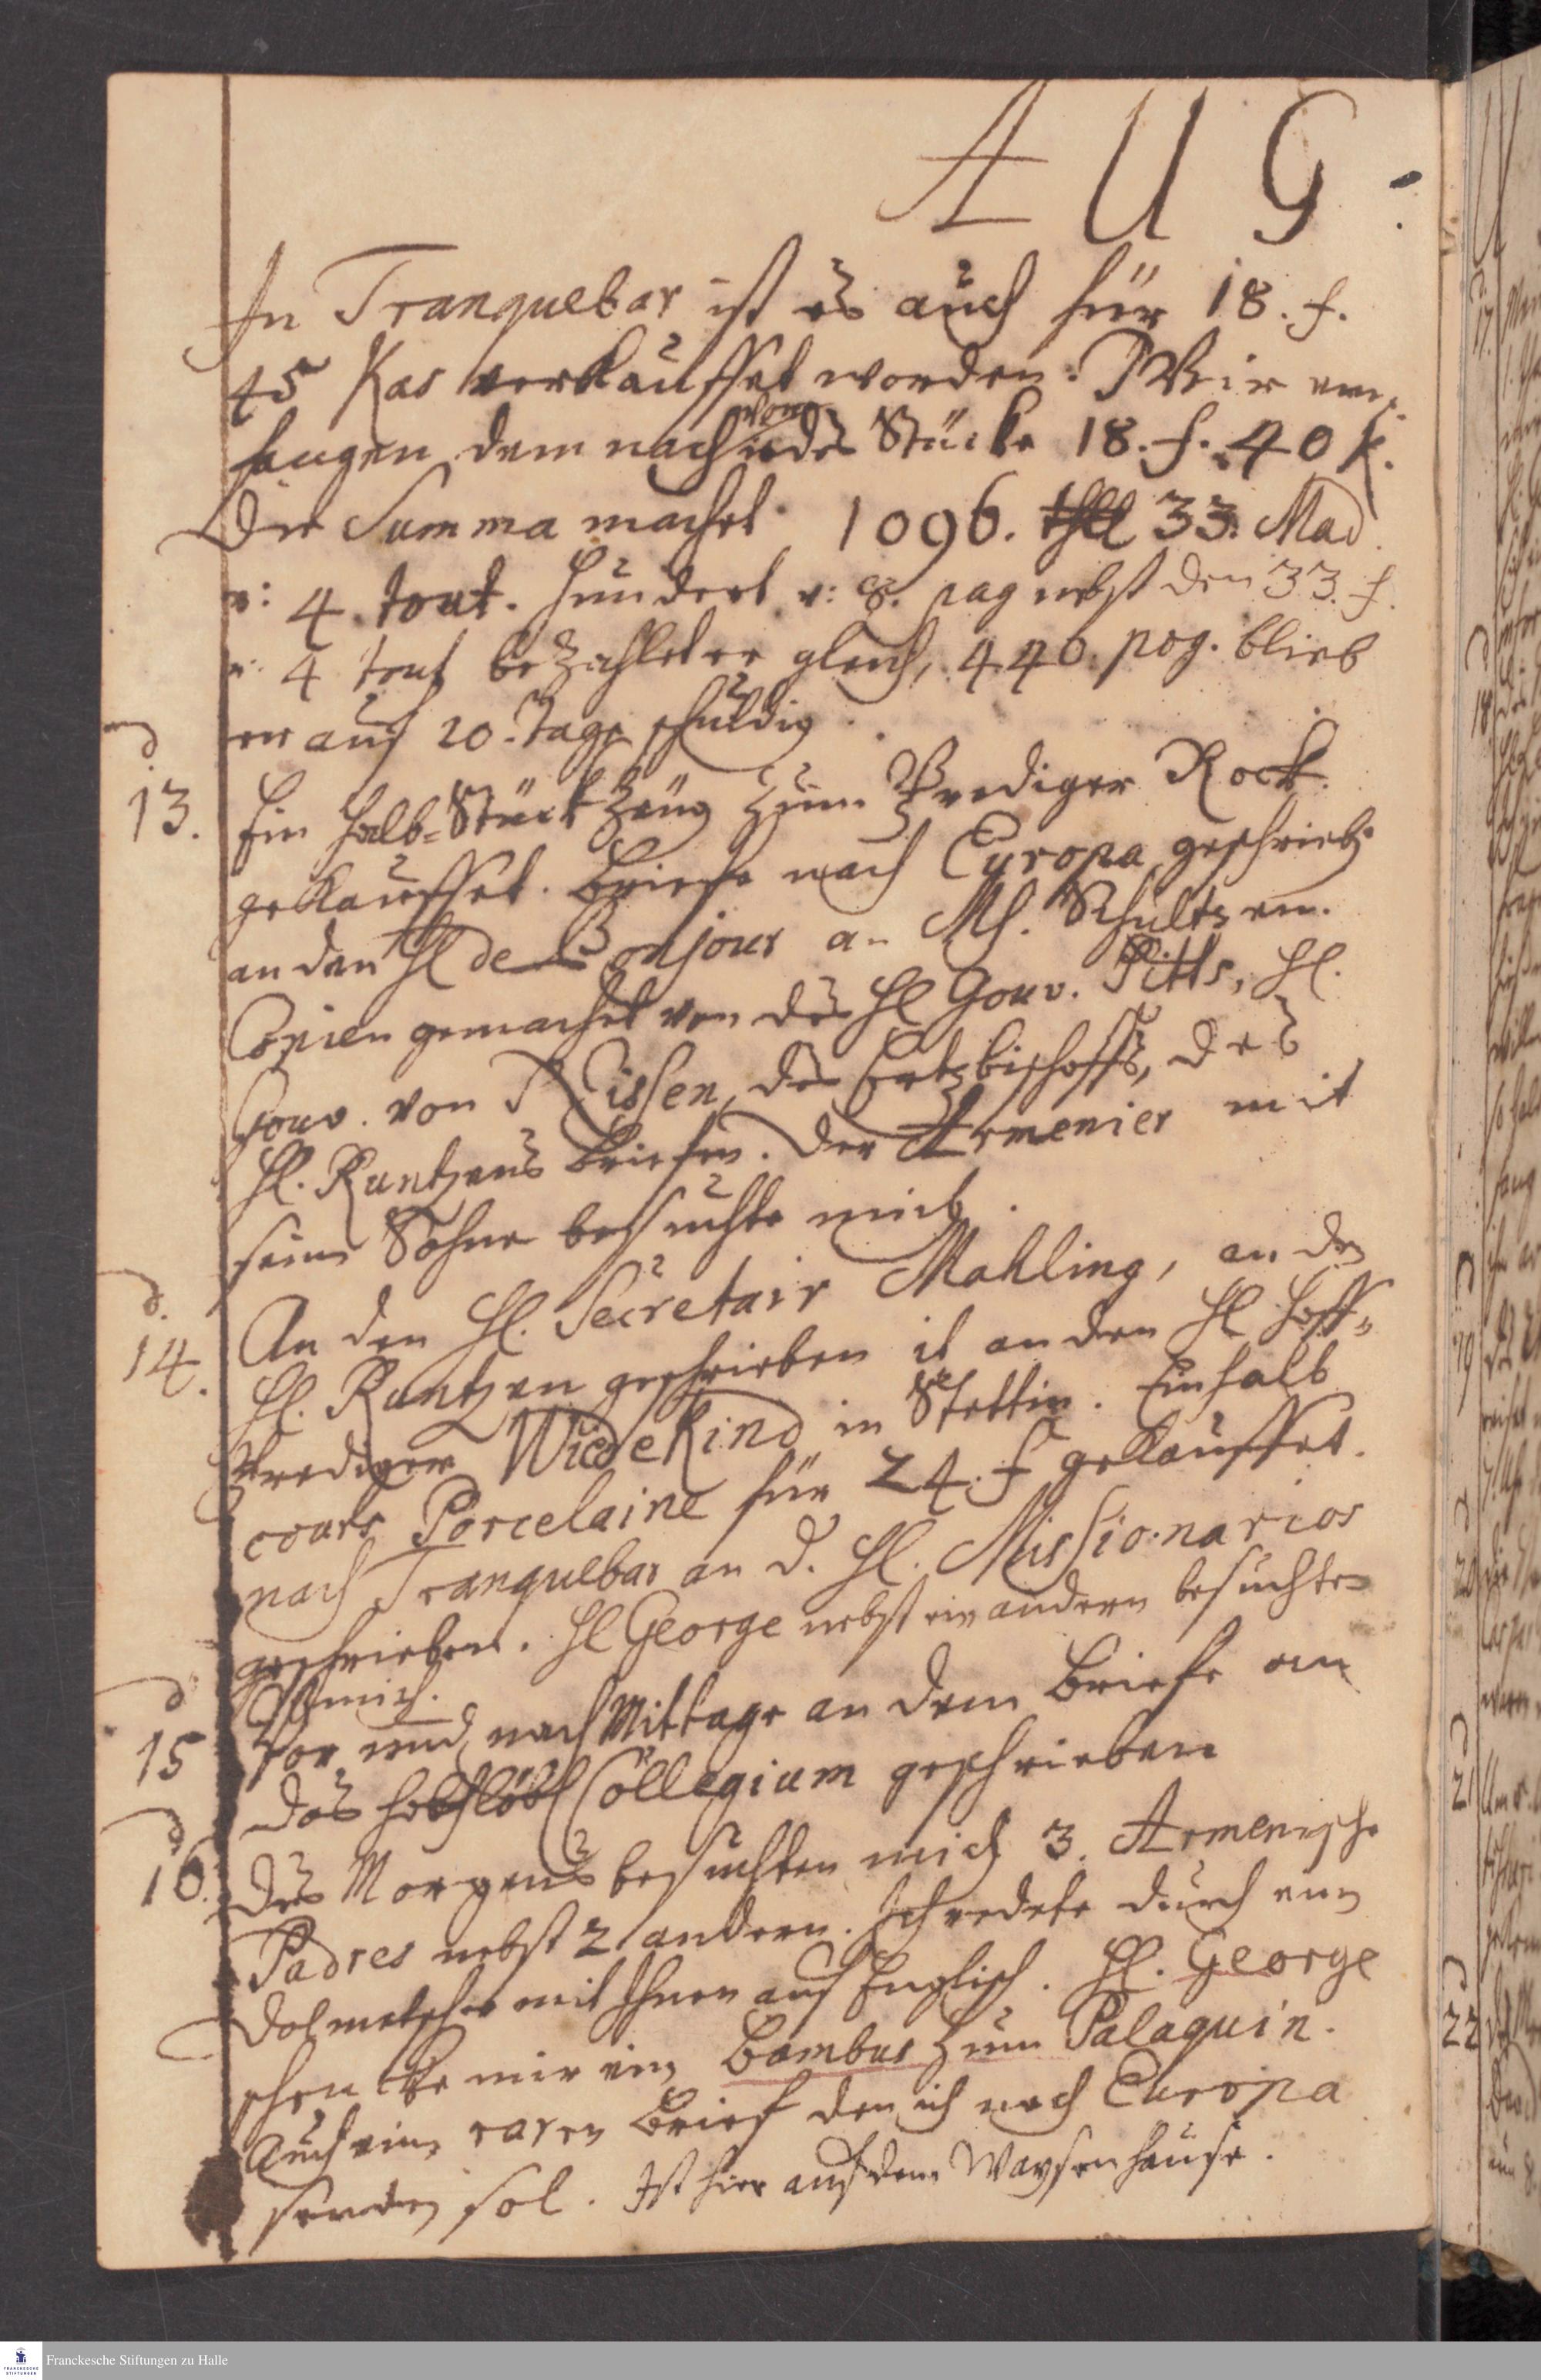 AUG.
In Tranquebar ist es auch für 18. f.
45 Kas verkauffet worden. Wir em,
fangen dem nach von des Stücke 18. f. 40 k.
Die Summa machet 1096. 33. Mad.
u: 4. tout. hundert u: 8. pag nebst den 33. f.
u: 4 tout bezahlet er gleich, 440. pog. blieb
er auf 20. Tage schuldig.
d.
13.
Ein halb-Stück Zeug zum Prediger Rock
gekauffet. Briefe nach Europa geschrieb.
an den Hl de Bonjour an Mh. Schultzen.
Copien gemachet von des Hl Gouv. Pitts, Hl.
Gouv. von Nissen, des Ertzbischoffs, des
Hl. Runtzens Briefen. Der Armenier mit
seim Sohne besuchte mich.
d.
14.
An den Hl. Secretair Mahling, an den
Hl. Runtzen geschrieben it an den Hl Hoff=
Prediger Wiedekind in Stettin. Ein halb
cours Porcelaine für 24. f gekauffet.
nach Tranquebar an d. Hl. Missionarios
geschrieben. Hl George nebst ein andern besuchte
mich.
d
15
Vor und nach Mittage an dem Briefe an
das hochlöbl Collegium geschrieben
d
16.
Des Morgens besuchten mich 3. Armenische
Padres nebst 2 andern. Ich redete durch ein
Dolmetscher mit Ihnen auf Englisch. Hl. George
schenkte mir ein Bambus zum Palaquin.
Auch ein raren Brief den ich nach Europa
senden sol. Ist hier auf dem Waysenhause.
17.
18
19
20
21
22
Franckesche Stiftungen zu Halle
FRANCKESCHE
STIFTUNGEN